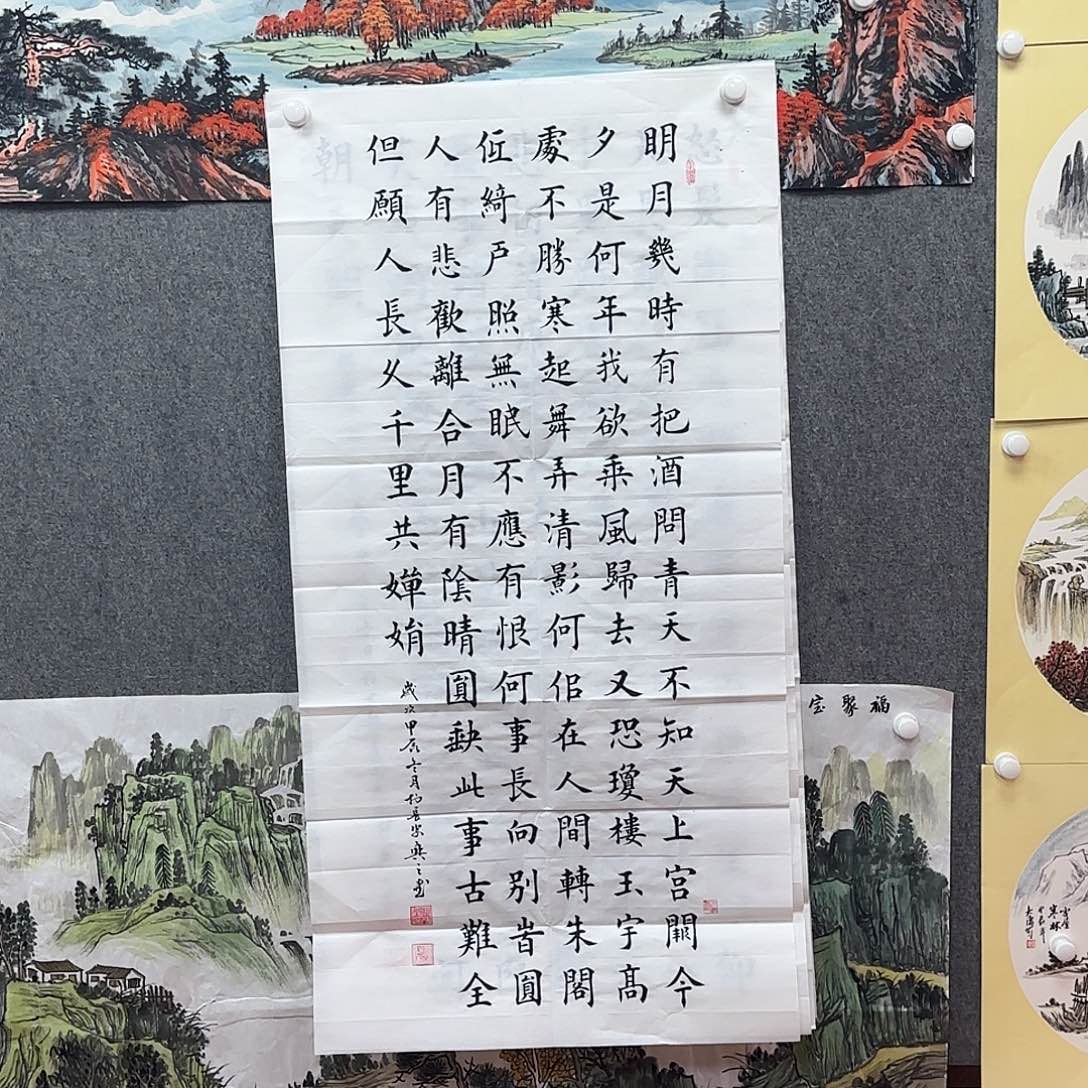 明月幾時有把酒問青天不知天上宮闕今
夕是何年我欲乘風歸去又恐瓊樓玉宇髙
處不勝寒起舞弄清影何佀在人間轉朱閣
仾綺戶照無眠不應有恨何事長向别旹圓
人有悲歡離合月有陰晴圓缺此事古難全
但願人長久千里共嬋娟
歲次甲辰冬月
福聚宝
寒林